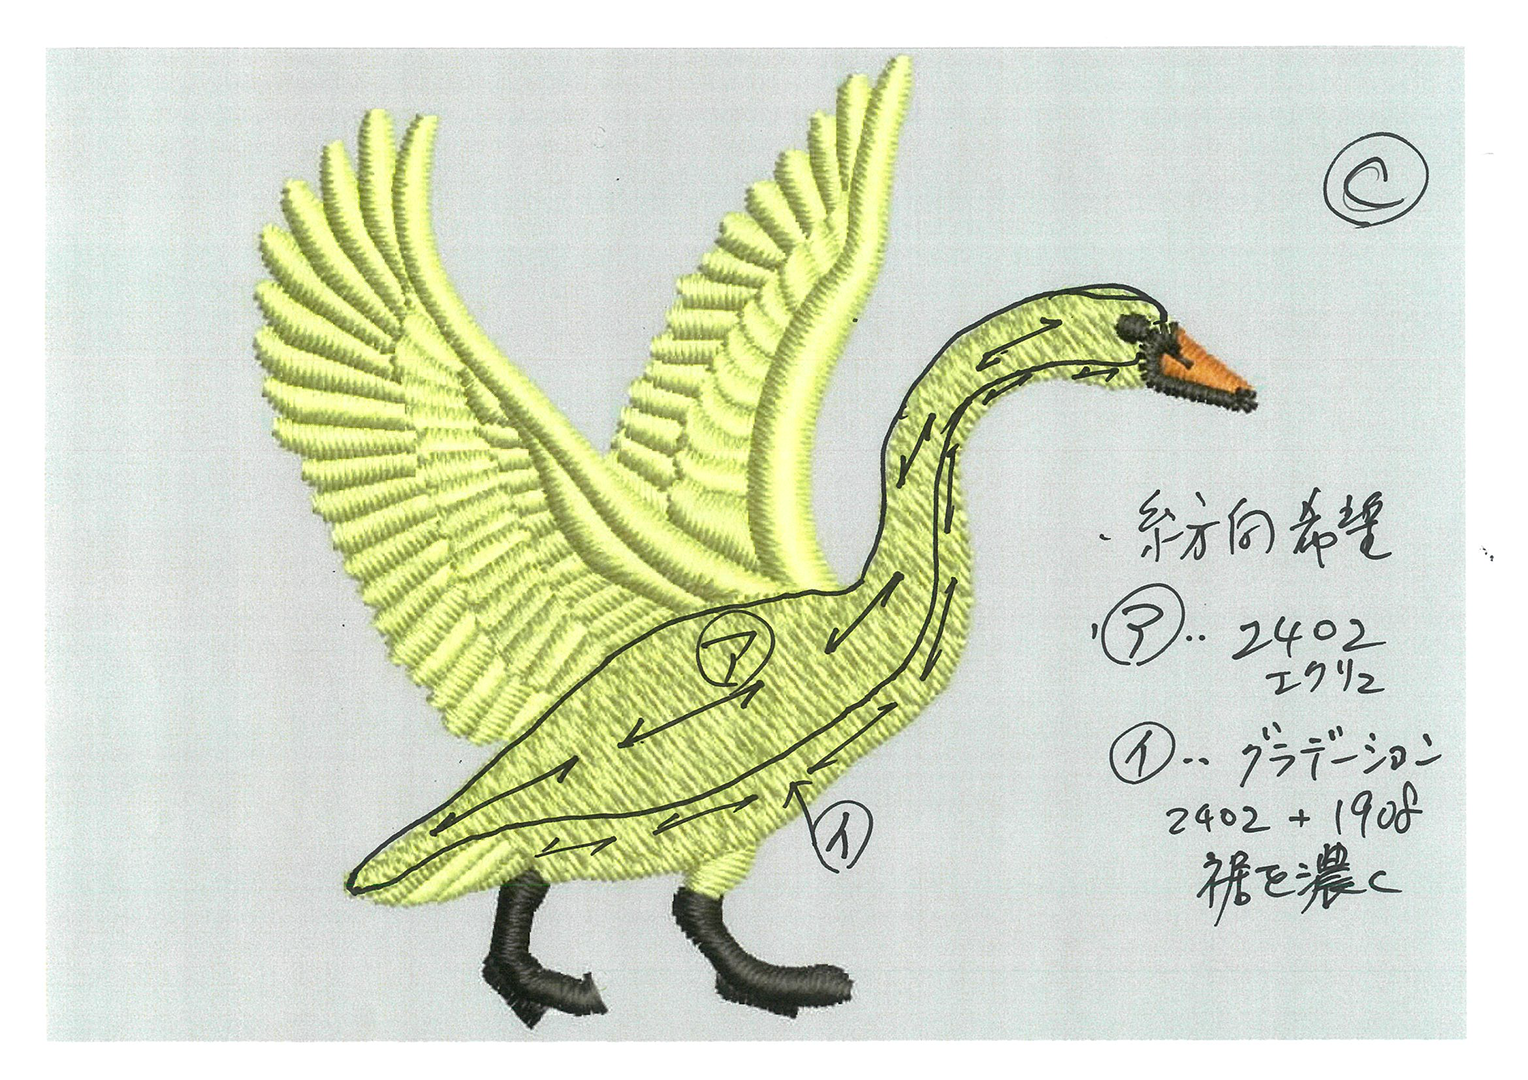 C
・糸方向希望
ア‥2402
エクリュ
イ‥グラデーション
2402+1908
裾を濃く
ア
イ